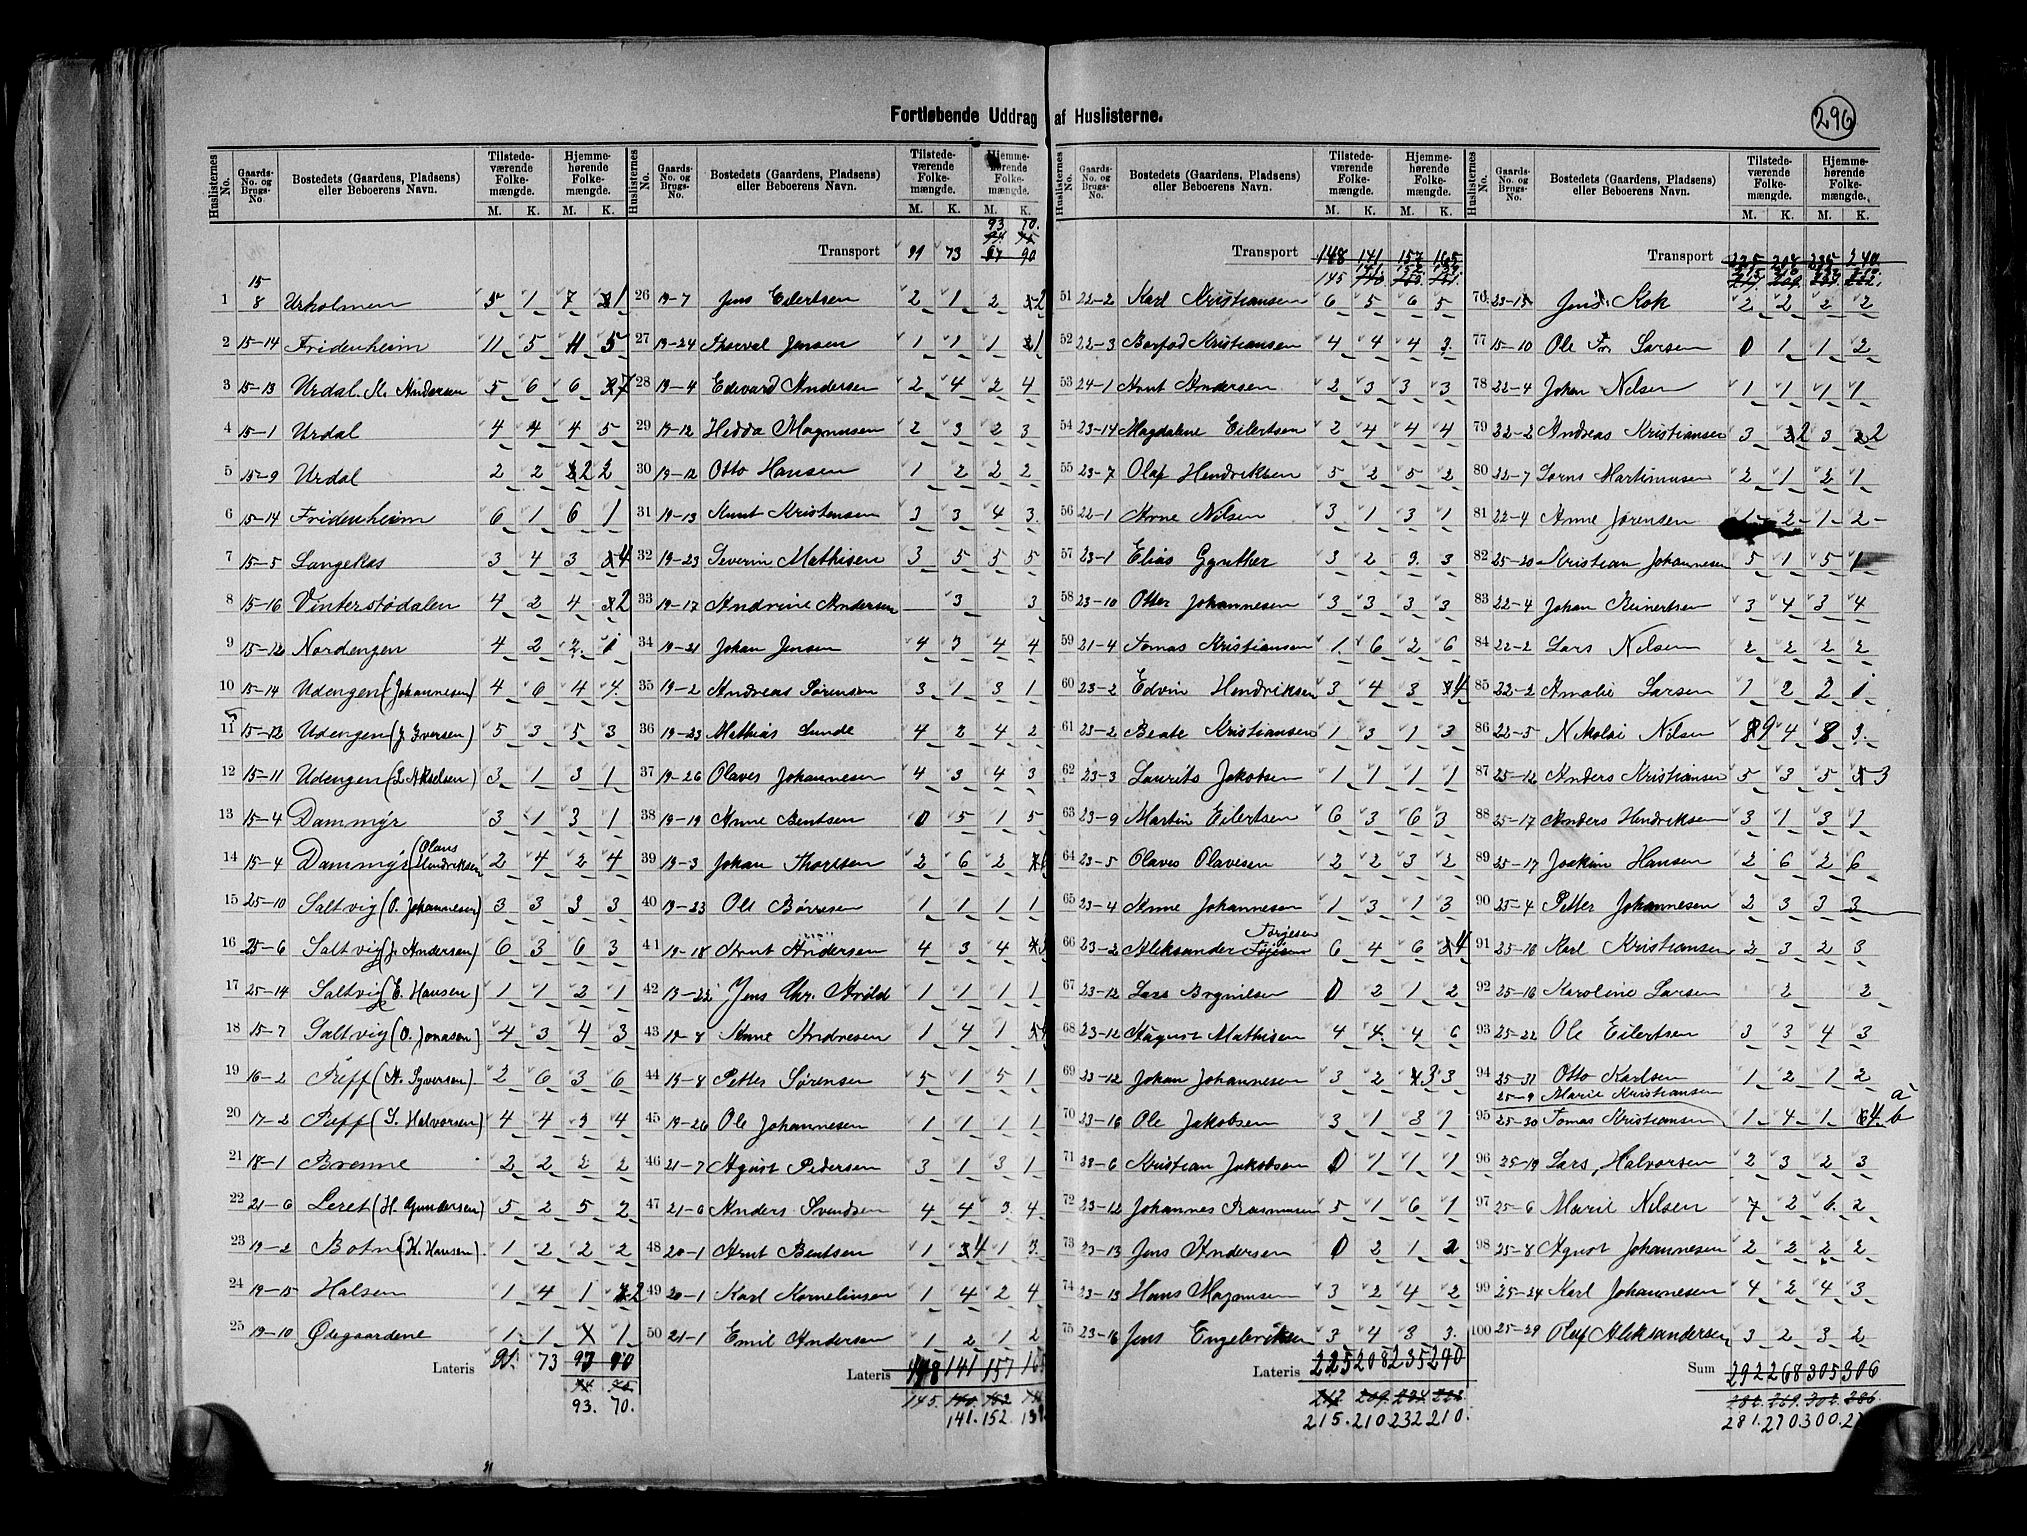 Fortløbende Uddrag af Huslisterne.
296
Huslisternes No. Gaards-No. og Brugs-No. Bostedets (Gaardens, Pladsens) eller Beboerens Navn. Tilstedeværende Folkemængde. M. K. Hjemmehørende Folkemængde. M. K.
1 15 8 Urholmen
2 15-14 Fridenheim 11 5 11 5
3 15-13 Urdal. M. Andersen 5 6 6 7
4 15-1 Urdal 4 4 4 5
5 15-9 Urdal 2 2 2 2
6 15-14 Fridenheim 6 1 6 1
7 15-5 Langekas 3 4 3 4
8 15-16 Vinterstødalen 4 2 4 2
9 15-12 Nordengen 4 2 2 1
10 15-14 Udengen (Johannesen) 4 6 4 4
11 15-12 Udengen (J. Iversen) 5 3 5 3
12 15-11 Udengen 3 1 3 1
13 15-4 Dammyr 3 1 3 1
14 15-4 Dammyr (Olaus Hendriksen 2 4 2 4
15 25-10 Saltvig (O. Johannesen) 3 3 3 3
16 25-6 Saltvig (J. Andersen) 6 3 6 3
17 25-14 Saltvig (E. Hansen) 1 1 2 1
18 15-7 Saltvig (O. Jonasen) 4 3 4 3
19 16-2 (A. Syversen) 2 6 3 6
20 17-2 (S. Halvorsen) 4 4 3 4
21 18-1 Brenne 2 2 2 2
22 21-6 Leret (H. Gundersen) 5 2 5 2
23 19-2 Botn (H. Hansen) 1 2 2 2
24 19-15 Halsen 1 4 1 2
25 19-10 Ødegaardene 1 1 1
Lateris 91 73 93 90
74 75
93. 70.
Transport 91 73 93 70
26 19-7 Jens Eilertsen 2 1 2 2
27 19-24 Thorval Jensen 1 1 1 1
28 19-4 Edevard Andersen 2 4 2 4
29 19-12 Hedda Magnusen 2 3 2 3
30 19-12 Otto Hansen 1 2 2 2
31 19-13 Knut Kristensen 3 3 4 3
32 19-23 Severin Mathisen 3 5 5 5
33 19-17 Andrine Andersen 3 3
34 19-21 Johan Jensen 4 3 4 4
35 19-2 Andreas Sørensen 3 1 3 1
36 19-23 Mathias Lunde 4 2 4 2
37 19-26 Olaves Johannesen 4 3 4 3
38 19-19 Anne Bentsen 0 5 1 5
39 19-3 Johan Thorsen 2 6 2
40 19-23 Ole Børresen 1 1 1 1
41 19-18 Knut Andersen 4 3 4
42 19-22 Jens Chr. 1 1 1 1
43 19-8 Anne Andresen 1 4 1
44 15-8 Petter Sørensen 5 1 5 1
45 19-26 Ole Johannesen 1 1 1 1
46 21-7 Agust Pedersen 3 1 3 1
47 21-6 Anders Svendsen 4 4 3 4
48 20-1 Knut Bentsen 1 4 1 3
49 20-1 Karl Kornelinsen 1 4 2 4
50 21-1 Emil Andersen 1 2 1 2
Lateris 148 141 157
145. 140. 152
141. 152.
Transport 148 141 157 165
145
51 22-2 Karl Kristiansen 6 5 6 5
52 22-3 Kristiansen 4 4 4 3
53 24-1 Knut Andersen 2 3 3 3
54 23-14 Magdaline Eilertsen 2 4 4 4
55 23-7 Olaf Hendriksen 5 2 5 2
56 22-1 Arne Nilsen 3 1 3 1
57 23-1 Elias Gynther 3 2 3 3
58 23-10 Otter Johannesen 3 3 3 3
59 21-4 Tomas Kristiansen 1 6 2 6
60 23-2 Edvin Hendriksen 3 4 3 4
61 23-2 Beate Kristiansen 1 3 1 3
62 23-3 Laurits Jakobsen 1 1 1 1
63 23-9 Martin Eilertsen 6 3 6 3
64 23-5 Olaves Olavesen 2 2 3 2
65 23-4 Anne Johannesen 1 3 1 3
66 23-2 Aleksander Torjesen 6 4 6 4
67 23-12 Lars Brynilsen 0 2 1 2
68 23-12 August Mathisen 4 4 4 6
69 23-12 Johan Johannesen 3 2 3 3
70 23-16 Ole Jakobsen 3 1 3 1
71 23-6 Kristian Jakobsen 0 1 1 1
72 23-12 Johannes Rasmusen 5 1 6 1
73 23-13 Jens Andersen 0 2 1 2
74 23-13 Hans Magnusen 3 2 4 2
75 23-16 Jens Engebriksen 3 4 3 3
Lateris 225 208 235 240
215. 210 232 210.
Transport 225 208 235 240
76 23-15 Jens Kok 2 2 2 2
77 15-10 Ole Larsen 0 1 1 2
78 22-4 Johan Nilsen 1 1 1 1
79 22-2 Andreas Kristiansen 3 2 3 2
80 22-7 Martinusen 2 1 2 1
81 22-4 Anne Jørensen 1 2 1 2
82 25-20 Kristian Johannesen 5 1 5 1
83 22-4 Johan Reinertsen 3 4 3 4
84 22-2 Lars Nilsen 2 2 2 2
85 22-2 Amalie Larsen 1 2 2 1
86 22-5 Nikolai Nilsen 9 4 8 3
87 25-12 Anders Kristiansen 5 3 5 3
88 25-17 Anders Hendriksen 3 1 3 1
89 25-17 Joakim Hansen 2 6 2 6
90 25-4 Petter Johannesen 2 3 3 3
91 25-16 Karl Kristiansen 2 3 2 3
92 25-16 Karoline Larsen 2 2
93 25-22 Ole Eilertsen 3 3 4 3
94 25-31 Otto Karlsen 1 2 1 2
25-9 Marie Kristiansen a
95 25-30 Tomas Kristiansen 1 4 1 4 b
96 25-19 Lars Halvorsen 2 3 2 3
97 25-6 Marie Nilsen 7 2 6 2
98 25-8 Agust Johannesen 2 2 2 2
99 25-24 Karl Johannesen 4 2 4 3
100 25-29 Oluf Aleksandersen 3 2 3 2
Sum 292 268 305 306
281. 270 300.